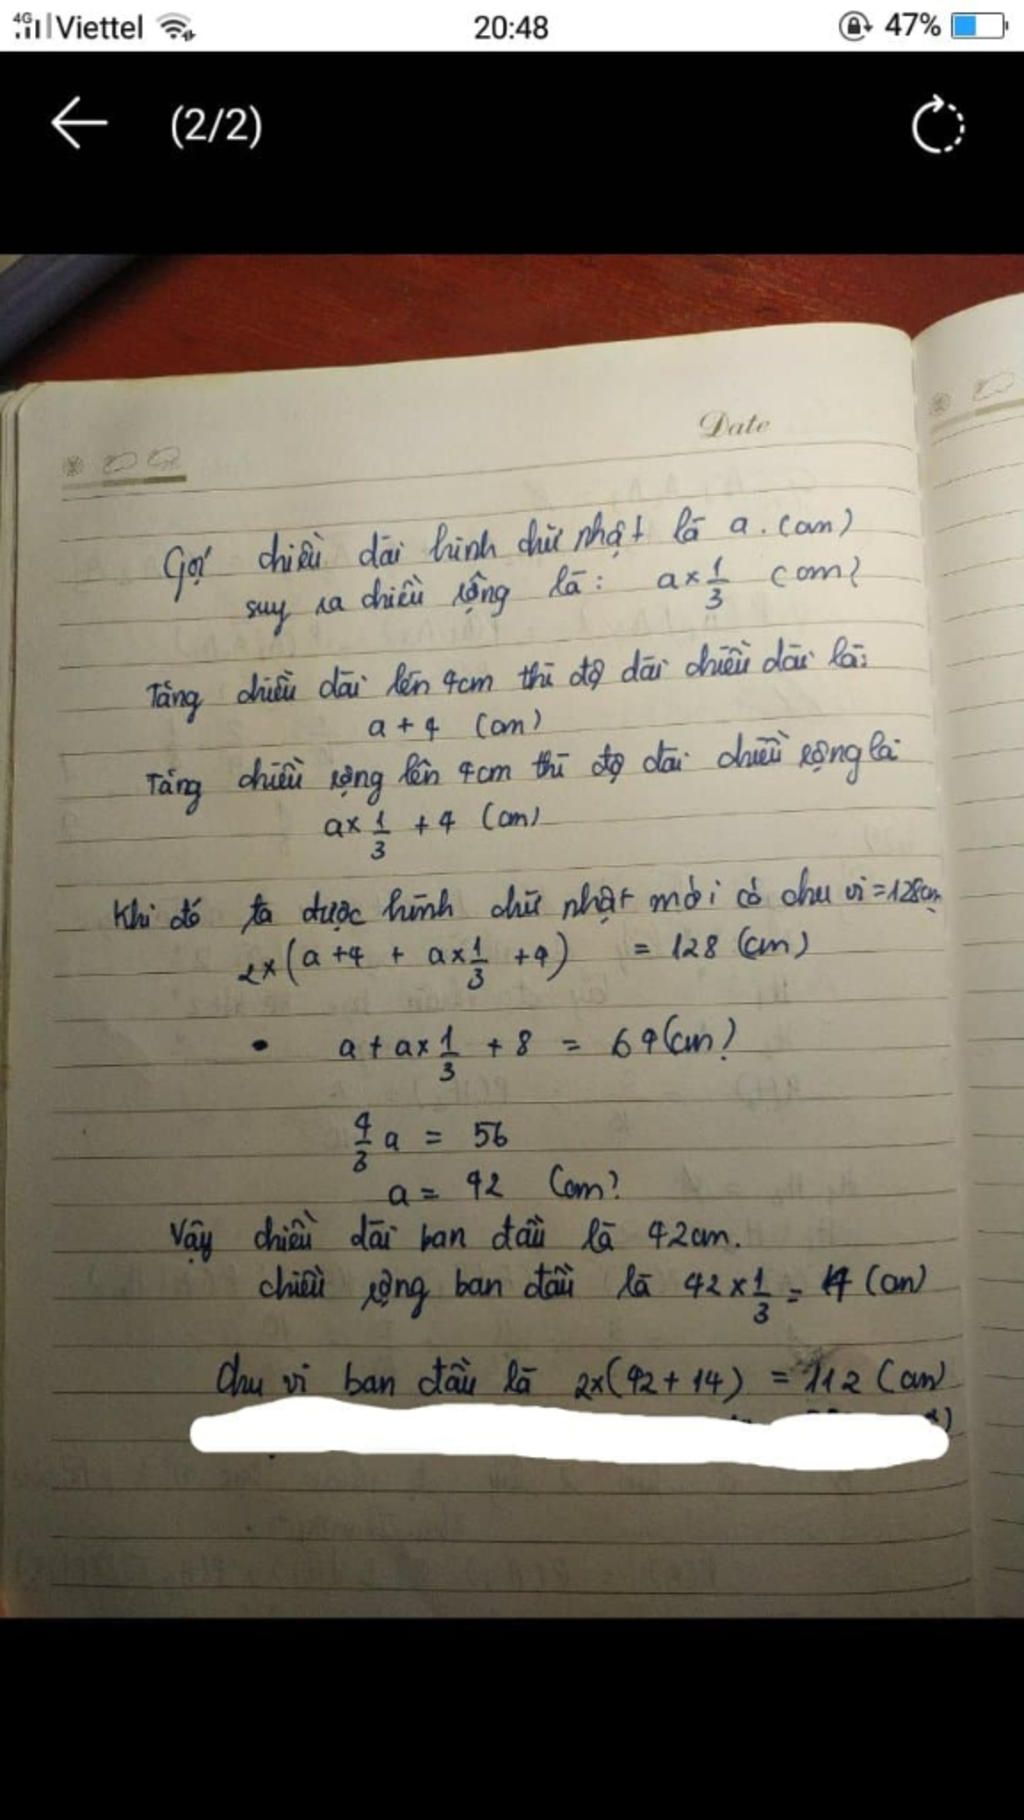 4G Viettel 20:48 47%
(2/2)
Date
Gọi chiều dài hình chữ nhật là a. (cm)
suy ra chiều rộng là: a × 1/3 (cm)
Tăng chiều dài lên 4cm thì độ dài chiều dài là:
a + 4 (cm)
Tăng chiều rộng lên 4cm thì độ dài chiều rộng là
a × 1/3 + 4 (cm)
Khi đó ta được hình chữ nhật mới có chu vi = 128cm
2 × (a + 4 + a × 1/3 + 4) = 128 (cm)
• a + a × 1/3 + 8 = 64 (cm)
4/3 a = 56
a = 42 (cm)
Vậy chiều dài ban đầu là 42cm.
chiều rộng ban đầu là 42 × 1/3 = 14 (cm)
Chu vi ban đầu là 2 × (42 + 14) = 112 (cm)